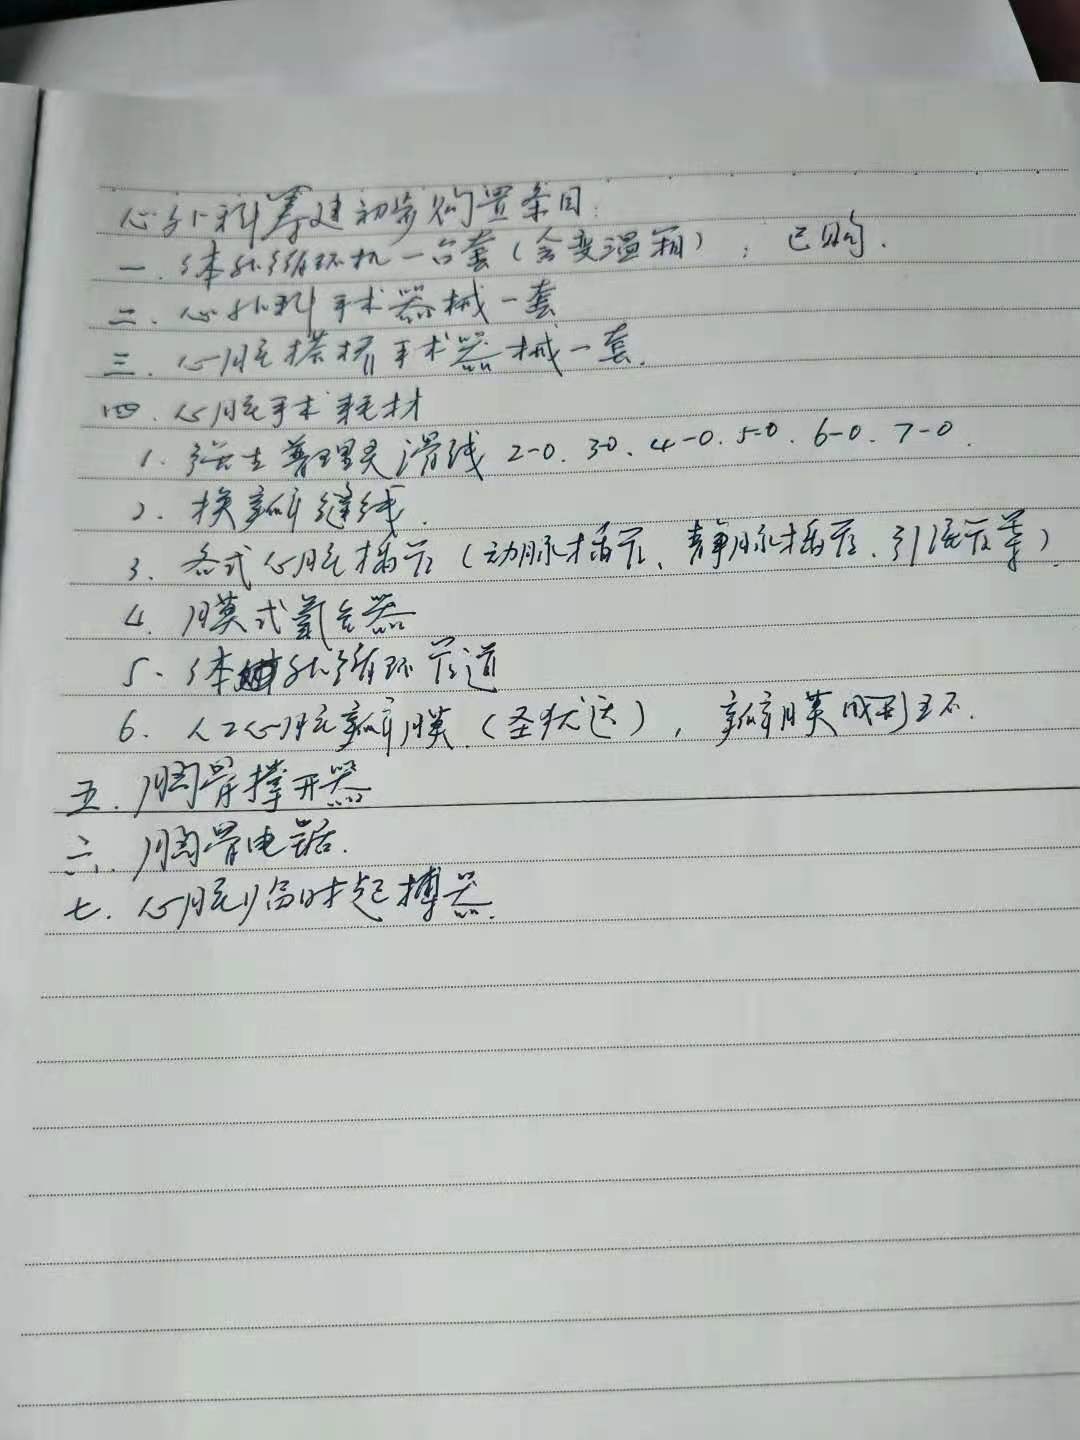 心外科筹建初步购置条目:
一. 体外循环机一台套(含变温箱), 已购.
二. 心外科手术器械一套
三. 心脏搭桥手术器械一套.
四. 心脏手术耗材
1. 强生普理灵滑线 2-0. 3-0、4-0. 5-0. 6-0. 7-0.
2. 换瓣缝线.
3. 各式心脏插管(动脉插管、静脉插管、引流管等)
4. 膜式氧合器
5. 体外循环管道
6. 人工心脏瓣膜.(圣犹达), 瓣膜成形环.
五. 胸骨撑开器
六. 胸骨电锯.
七. 心脏临时起搏器.